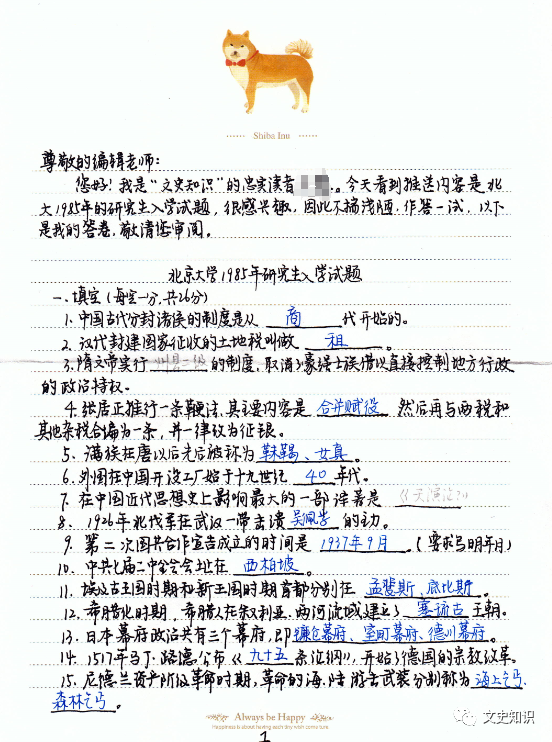 Shiba Inu
尊敬的编辑老师：
您好！我是“文史知识”的忠实读者。今天看到推送内容是北
大1985年的研究生入学试题，很感兴趣，因此不揣浅陋，作答一试，以下
是我的答卷，敬请您审阅。
北京大学1985年研究生入学试题
一、填空（每空一分，共26分）
1.中国古代分封诸侯的制度是从 商 代开始的。
2.汉代封建国家征收的土地税叫做 租 。
3.隋文帝实行 州县二级 的制度，取消了豪强士族借以直接控制地方行政
的政治特权。
4.张居正推行一条鞭法，其主要内容是 合并赋役 然后再与两税和
其他杂税合编为一条，并一律改为征银。
5、满族在唐以后先后被称为 靺鞨、女真 。
6.外国在中国开设工厂始于十九世纪 40 年代。
7.在中国近代思想史上影响最大的一部译著是 《天演论》
8、1926年北伐军在武汉一带击溃 吴佩孚 的主力。
9.第二次国共合作宣告成立的时间是 1937年9月 。（要求写明年月）
10.中共七届二中全会会址在 西柏坡 。
11.埃及古王国时期和新王国时期首都分别在 孟斐斯、底比斯 。
12.希腊化时期，希腊人在叙利亚、两河流域建立了 塞琉古 王朝。
13.日本幕府政治共有三个幕府，即 镰仓幕府、室町幕府、德川幕府。
14.1517年马丁·路德公布《 九十五 条论纲》，开始了德国的宗教改革。
15.尼德兰资产阶级革命时期，革命的海、陆游击武装分别称为 海上乞丐、
森林乞丐 。
Always be Happy
Happiness is about having each tiny wish come true
1
文史知识